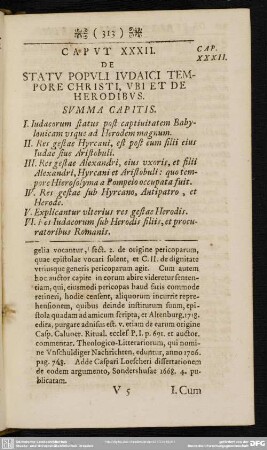 ( 313 )
CAPVT XXXII.
CAP.
XXXII.
DE
STATV POPVLI IVDAICI TEM-
PORE CHRISTI, VBI ET DE
HERODIBVS.
SVMMA CAPITIS.
I. Iudaeorum status post captiuitatem Baby-
lonicam vsque ad Herodem magnum.
II. Res gestae Hyrcani, est post eum filii eius
Iudae siue Aristobuli.
III. Res gestae Alexandri, eius vxoris, et filii
Alexandri, Hyrcani et Aristobuli: quo tem-
pore Hierosolyma a Pompeio occupata fuit.
IV. Res gestae sub Hyrcano, Antipatro, et
Herode.
V. Explicantur vlterius res gestae Herodis.
VI. Res Iudaeorum sub Herodis filiis, et procu-
ratoribus Romanis.
gelia vocantur, sect. 2. de origine pericoparum,
quae epistolae vocari solent, et C. II. de dignitate
vtriusque generis pericoparum agit. Cum autem
hoc auctor capite in eorum abire videretur senten-
tiam, qui, eiusmodi pericopas haud satis commode
retineri, hodie censent, aliquorum incurrit repre-
hensionem, quibus deinde institutum suum, epi-
stola quadam ad amicum scripta, et Altenburg. 1718.
edita, purgare adnisus est. v. etiam de earum origine
Casp. Caluoer. Ritual. eccles. P. I. p. 691. et auctor.
commentar. Theologico-Litterariorum, qui nomi-
ne Vnschuldiger Nachrichten, eduntur, anno 1706.
pag. 748. Adde Caspari Loescheri dissertationem
de eodem argumento, Sondershusae 1668. 4. pu-
blicatam.
V 5
I. Cum